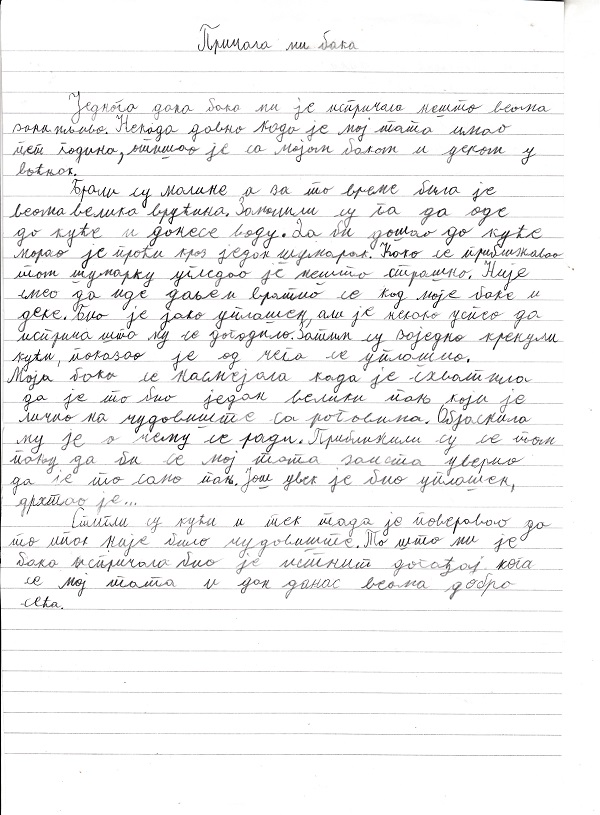 Причала ми бака
Једнога дана бака ми је испричала нешто веома
занимљиво. Некада давно када је мој тата имао
пет година, отишао је са мојом баком и деком у
воћњак.
Брали су малине а за то време била је
веома велика врућина. Замолили су га да оде
до куће и донесе воду. Да би дошао до куће
морао је проћи кроз један шумарак. Како се приближавао
том шумарку угледао је нешто страшно. Није
смео да иде даље и вратио се код моје баке и
деке. Био је јако уплашен, али је некако успео да
исприча шта му се догодило. Затим су заједно кренули
кући, показао је од чега се уплашио.
Моја бака се насмејала када је схватила
да је то био један велики пањ који је
личио на чудовиште са роговима. Објаснила
му је о чему се ради. Приближили су се том
пању да би се мој тата заиста уверио
да је то само пањ. Још увек је био уплашен,
дрхтао је...
Стигли су кући и тек тада је поверовао да
то ипак није било чудовиште. То што ми је
бака испричала био је истинит догађај кога
се мој тата и дан данас веома добро
сећа.